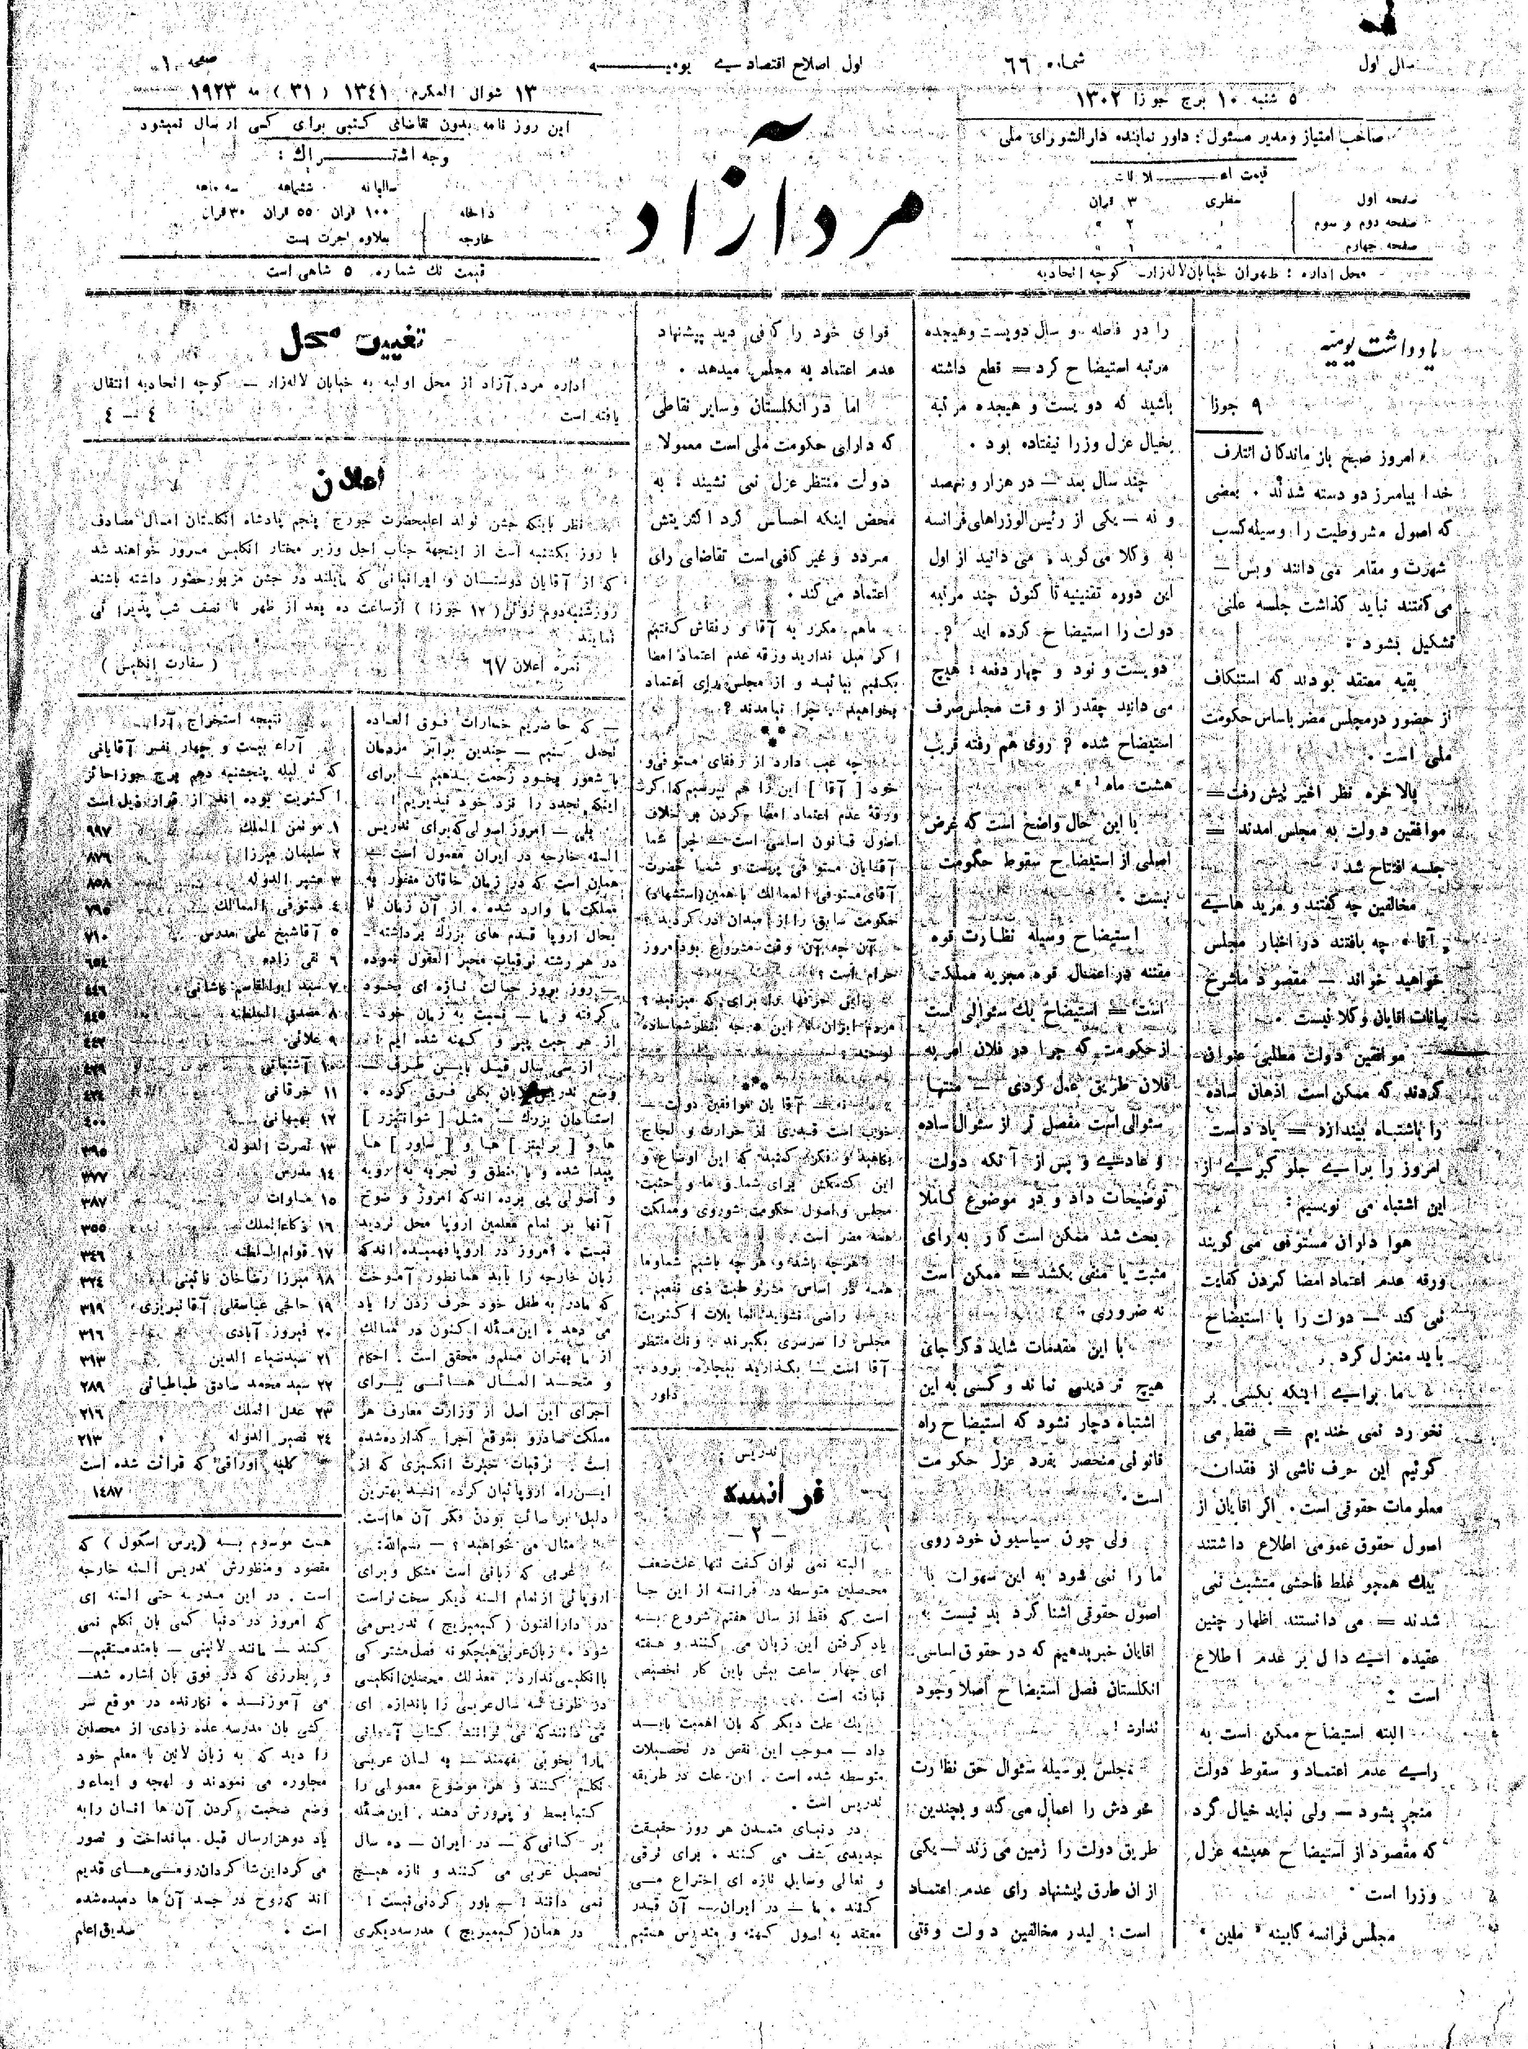 سال اول
شماره ٦٦
اول اصلاح اقتصادی یومیه
صفحه ١
٥ شنبه ١٠ برج جوزا ١٣٠٢
١٣ شوال المکرم ١٣٤١ (٣١) مه ١٩٢٣
صاحب امتیاز و مدیر مسئول : داور نماینده دارالشورای ملی
قیمت اعلانات
صفحه اول سطری ٣ قران
صفحه دوم و سوم » ٢ »
صفحه چهارم » ١ »
محل اداره : طهران خیابان لاله‌زار کوچه اتحادیه
مرد آزاد
این روز نامه بدون تقاضای کتبی برای کسی ارسال نمیشود
وجه اشتراک :
سالیانه ششماهه سه ماهه
داخله ١٠٠ قران ٥٥ قران ٣٠ قران
خارجه بعلاوه اجرت پست
قیمت تک شماره ٥ شاهی است
یادداشت یومیه
٩ جوزا
امروز صبح باز ماندگان ائتلاف
خدا بیامرز دو دسته شدند . بعضی
که اصول مشروطیت را وسیله کسب
شهرت و مقام می دانند و بس —
می‌گفتند نباید گذاشت جلسه علنی
تشکیل بشود .
بقیه معتقد بودند که استنکاف
از حضور در مجلس مضر باساس حکومت
ملی است .
بالاخره نظر اخیر پیش رفت =
موافقین دولت به مجلس امدند =
جلسه افتتاح شد .
مخالفین چه گفتند و مرید های
«آقا» چه بافتند در اخبار مجلس
خواهید خواند — مقصود ما شرح
بیانات اقایان وکلا نیست .
موافقین دولت مطلبی عنوان
کردند که ممکن است اذهان ساده
را باشتباه بیندازد = یاد داست
امروز را برای جلو گیری از
این اشتباه می نویسیم :
هوا داران مستوفی می گویند
ورقه عدم اعتماد امضا کردن کفایت
نمی کند — دولت را با استیضاح
باید منعزل کرد .
ما برای اینکه بکسی بر
نخورد نمی خندیم = فقط می
گوئیم این حرف ناشی از فقدان
معلومات حقوقی است . اگر اقایان از
اصول حقوق عمومی اطلاع داشتند
بیک همچو غلط فاحشی متشبث نمی
شدند = می دانستند اظهار چنین
عقیده ای دال بر عدم اطلاع
است :
البته استیضاح ممکن است به
رای عدم اعتماد و سقوط دولت
منجر بشود — ولی نباید خیال گرد
که مقصود از استیضاح همیشه عزل
وزرا است .
مجلس فرانسه کابینه « ملین »
را در فاصله دو سال دویست و هیجده
مرتبه استیضاح کرد = قطع داشته
باشید که دویست و هیجده مرتبه
بخیال عزل وزرا نیفتاده بود .
چند سال بعد — در هزار و نهصد
و نه — یکی از رئیس الوزراهای فرانسه
به وکلا می‌گوید : می دانید از اول
این دوره تقنینیه تا کنون چند مرتبه
دولت را استیضاح کرده اید ؟
دویست و نود و چهار دفعه : هیچ
می دانید چقدر از وقت مجلس صرف
استیضاح شده ؟ روی هم رفته قریب
هشت ماه !
با این حال واضح است که غرض
اصلی از استیضاح سقوط حکومت
نیست .
استیضاح وسیله نظارت قوه
مقننه در اعمال قوه مجریه مملکت
است = استیضاح یك سئوالی است
از حکومت که چرا در فلان امر به
فلان طریق عمل کردی — منتها
سئوالی است مفصل تر از سئوال ساده
و عادی و پس از آنکه دولت
توضیحات داد و در موضوع کاملا
بحث شد ممکن است کار به رای
مثبت یا منفی بکشد = ممکن است
نه ضروری .
با این مقدمات شاید دگر جای
هیچ تردیدی نماند و کسی به این
اشتباه دچار نشود که استیضاح راه
قانونی منحصر بفرد عزل حکومت
است .
ولی چون سیاسیون خود روی
ما را نمی شود به این سهوات با
اصول حقوقی اشنا گرد بد نیست به
اقایان خبر بدهیم که در حقوق اساسی
انگلستان فصل استیضاح اصلا وجود
ندارد !
مجلس بوسیله سئوال حق نظارت
خودش را اعمال می کند و بچندین
طریق دولت را زمین می زند — یکی
از ان طرق پیشنهاد رای عدم اعتماد
است : لیدر مخالفین دولت وقتی
قوای خود را کافی دید پیشنهاد
عدم اعتماد به مجلس میدهد .
اما در انگلستان و سایر نقاطی
که دارای حکومت ملی است معمولا
دولت منتظر عزل نمی نشیند : به
محض اینکه احساس کرد اکثریتش
مردد و غیر کافی است تقاضای رای
اعتماد می کند .
ما هم مکرر به آقا و رفقاش گفتیم
اگر میل ندارید ورقه عدم اعتماد امضا
بکنیم بیائید و از مجلس رای اعتماد
بخواهید . چرا نیامدند ؟
چه عیب دارد از رفقای مستوفی و
خود [ آقا ] این را هم بپرسیم که اگر
ورقه عدم اعتماد امضا کردن بر خلاف
اصول قانون اساسی است — چرا شما
آقایان مستوفی پرست و شما حضرت
آقای مستوفی الممالك با همین (استشهاد)
حکومت سابق را از میدان در کردید ؟
آن چه آن وقت مشروع بود امروز
حرام است ؟
آقایان موافقین دولت —
خوب است قدری از حرارت و لجاج
بکاهید و فکر کنید که این اوضاع و
این کشمکش برای شما و ما و حیثیت
مجلس و اصول حکومت شوروی و مملکت
همه مضر است .
هرچه باشد و هر چه باشیم شما و ما
همه در اساس مشروطیت ذی نفعیم .
راضی نشوید تمایلات اکثریت
مجلس را سرسری بگیرند . وقت منتظر
آقا است — بگذارید بیچاره برود .
داور
تدریس
فرانسه
— ٢ —
البته نمی توان گفت تنها علت ضعف
محصلین متوسطه در فرانسه از این جا
است که فقط از سال هفتم شروع به
یاد گرفتن این زبان می کنند و هفته
ای چهار ساعت بیش باین کار تخصیص
نیافته است .
یك علت دیگر که بان اهمیت باید
داد — موجب این نقص در تحصیلات
متوسطه شده است . این علت در طریقه
تدریس است .
در دنیای متمدن هر روز حقیقت
جدیدی کشف می کنند . برای ترقی
و تعالی وسایل تازه ای اختراع می
کنند . ما — در ایران — آن قدر
معتقد به اصول کهنه و مندرس هستیم
تغییر محل
اداره مرد آزاد از محل اولیه به خیابان لاله‌زار — کوچه اتحادیه انتقال
یافته است ٤ — ٤
اعلان
نظر باینکه جشن تولد اعلیحضرت جورج پنجم پادشاه انگلستان امسال مصادف
با روز یکشنبه است از اینجهة جناب اجل وزیر مختار انگلیس مسرور خواهند شد
که از آقایان دوستان و ایرانیانی که مایلند در جشن مزبور حضور داشته باشند
روز شنبه دوم ژوئن (١٢ جوزا) از ساعت ده بعد از ظهر تا نصف شب پذیرائی
نمایند
نمره اعلان ٦٧ (سفارت انگلیس)
— که حاضریم خسارات فوق العاده
تحمل کنیم — چندین برابر مردمان
با شعور بخود زحمت بدهیم — برای
اینکه تجدد را نزد خود نپذیریم !
بلی — امروز اصولی که برای تدریس
السنه خارجه در ایران معمول است —
همان است که در زمان خاقان مغفور به
مملکت ما وارد شده . از آن زمان تا
بحال اروپا قدم های بزرك برداشته —
در هر رشته ترقیات محیر العقول نموده
— روز بروز حیات تازه ای بخود
گرفته و ما — نسبت به زمان خود —
از هر حیث پیر و کهنه شده ایم !
از سی سال قبل باین طرف —
وضع تدریس زبان بکلی فرق کرده .
استادان بزرك — مثل [ شوایتزر ]
ها و [ برلیتز ] ها و [ ساور ] ها
پیدا شده و با منطق و تجربه به رویه
و اصولی پی برده اند که امروز و ضوح
آنها بر تمام معلمین اروپا محل تردید
نیست . امروز در اروپا فهمیده اند که
زبان خارجه را باید همانطور آموخت
که مادر به طفل خود حرف زدن را یاد
می دهد . این مسئله اکنون در ممالك
از ما بهتران مسلم و محقق است . احکام
و متحد المال هائی برای
اجرای این اصل از وزارت معارف هر
مملکت صادر و بموقع اجرا گذارده شده
است . ترقیات حیرت انگیزی که از
این راه اروپائیان کرده اند بهترین
دلیل بر صائب بودن فکر آن ها است .
مثال می خواهید ؟ — بسم الله :
عربی که زبانی است مشکل و برای
اروپائی از تمام السنه دیگر سخت تر است
در دارالفنون (کیمبریج) تدریس می
شود . زبان عربی هیچگونه فصل مشترکی
با انگلیسی ندارد . معذلك محصلین انگلیسی
در ظرف سه سال عربی را باندازه ای
می دانند که می توانند کتاب آسمانی
مارا بخوبی بفهمند — به لسان عربی
تکلم کنند و هر موضوع معمولی را
کتبا بسط و پرورش دهند . این مسئله
بر کسانی که — در ایران — ده سال
تحصیل عربی می کنند و تازه هیچ
نمی دانند ! — باور کردنی نیست !
در همان (کیمبریج) مدرسه دیگری
نتیجه استخراج آراء
آراء بیست و چهار نفر آقایانی
که تا لیله پنجشنبه دهم برج جوزا حائز
اکثریت بوده اند از قرار ذیل است
١ موتمن الملك ٩٩٧
٢ سلیمان میرزا ٨٧٦
٣ مشیر الدوله ٨٥٨
٤ مستوفی الممالك ٧٩٥
٥ آقا شیخ علی مدرس ٧١٠
٦ تقی زاده ٦٥٤
٧ سید ابوالقاسم کاشانی ٤٤٦
٨ مصدق السلطنه ٤٤٥
٩ علائی ٤٤٢
١٠ آشتیانی ٤٣٩
١١ خرقانی ٤٢٤
١٢ بهبهانی ٤٠٠
١٣ نصرت الدوله ٣٩٥
١٤ مدرس ٣٧٧
١٥ مساوات ٣٨٧
١٦ ذکاءالملك ٣٥٥
١٧ قوام السلطنه ٣٤٦
١٨ میرزا رضاخان نائینی ٣٢٤
١٩ حاجی عباسقلی آقا تبریزی ٣١٩
٢٠ فیروز آبادی ٣١٦
٢١ سید ضیاء الدین ٣١٣
٢٢ سید محمد صادق طباطبائی ٢٨٩
٢٣ عدل الملك ٢١٦
٢٤ نصیر الدوله ٢١٣
کلیه اوراقی که قرائت شده است
١٤٨٧
هست موسوم به (پرس اسکول) که
مقصود و منظورش تدریس السنه خارجه
است . در این مدرسه حتی السنه ای
که امروز در دنیا کسی بان تکلم نمی
کند — مانند لاتینی — بامتد مستقیم —
و بطرزی که در فوق بان اشاره شد —
می آموزند . نگارنده در موقع سر
کشی بان مدرسه عده زیادی از محصلین
را دید که به زبان لاتین با معلم خود
محاوره می نمودند و لهجه و ایماء و
وضع صحبت کردن آن ها انسان را به
یاد دو هزار سال قبل میانداخت و تصور
می کرد این شاگردان رومی های قدیم
اند که روح در جسد آن ها دمیده شده
است . صدیق اعلم